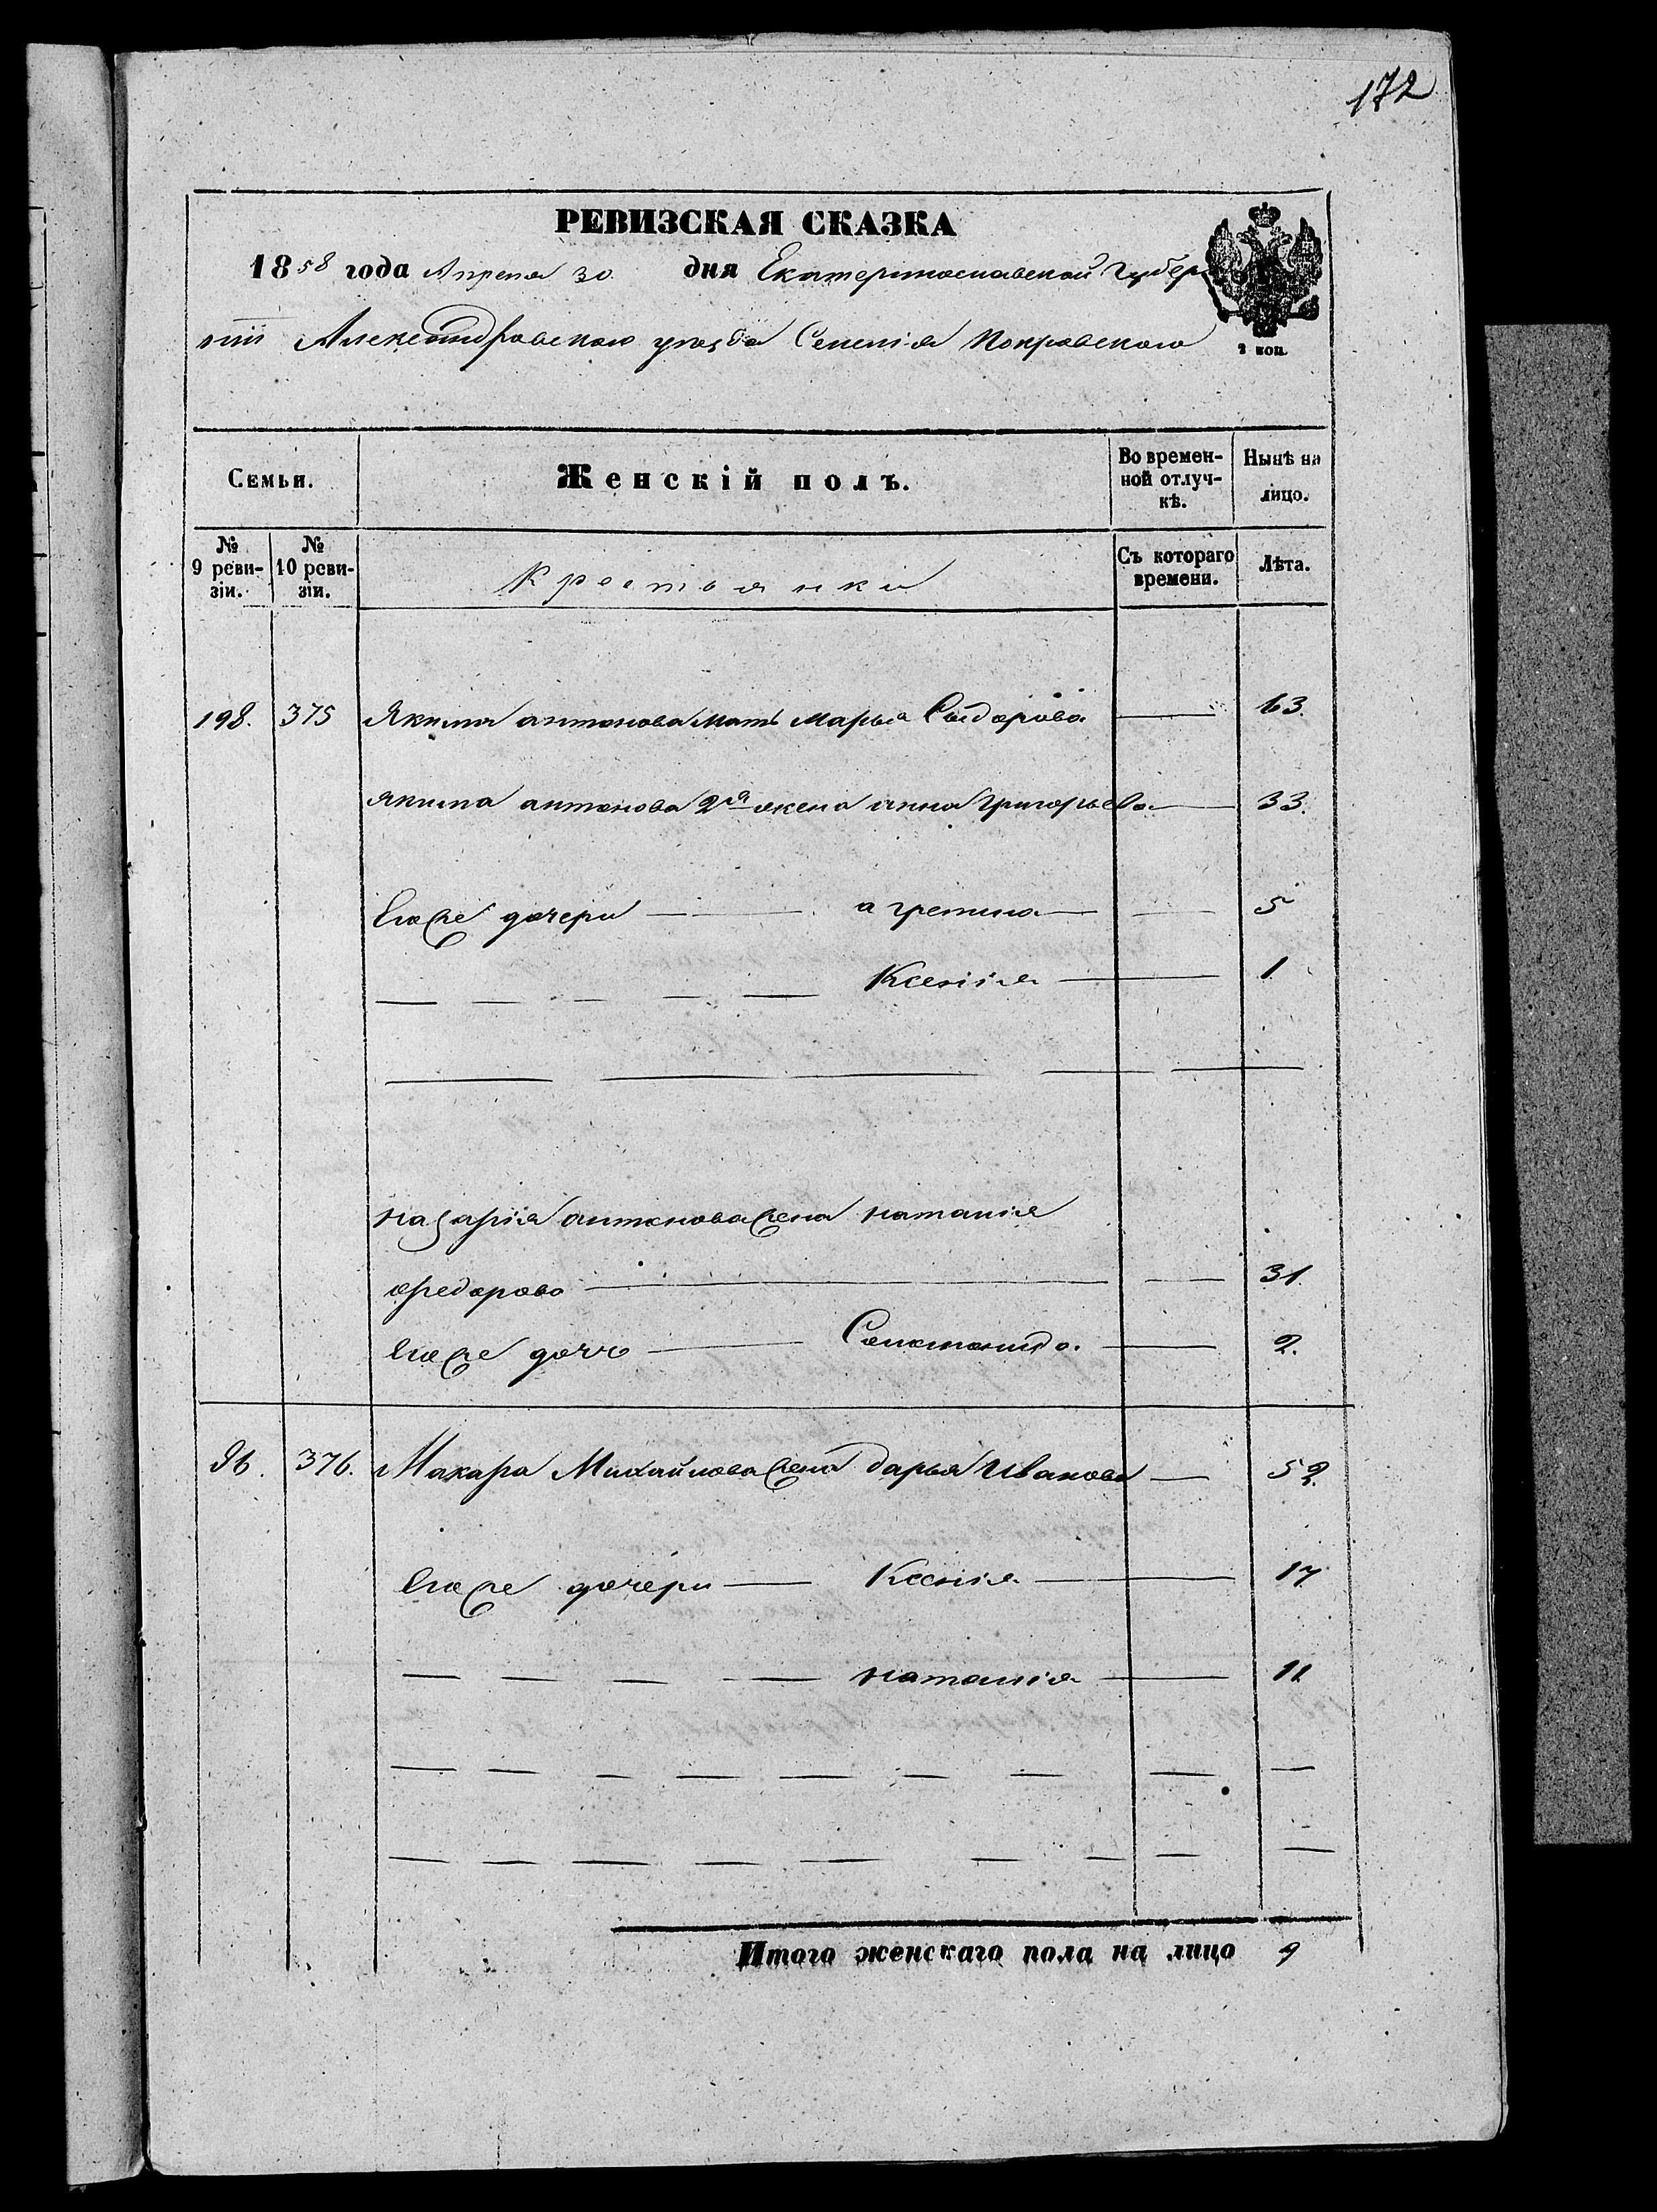 172
РЕВИЗСКАЯ СКАЗКА
1858 года Апреля 30 дня Екатеринославской Губер
ніи Александровского уезда Селенія Покровского
2 коп.
Семьи. Женскій полъ. Во времен- Нынѣ на
ной отлуч- лицо.
кѣ.
№ № Съ котораго Лѣта.
9 реви- 10 реви- Крестьянки времени.
зіи. зіи.
198. 375 Якима антонова мать марья Сидорова 63.
якима антонова 2я жена анна Григорьева 33.
Его же дочери агрепина 5
Ксенія 1
назарія антонова жена наталія
федорова 31.
Его же дочь 2.
96. 376. Макара Михайлова жена дарья Иванова 52.
Его же дочери Ксенія 17
наталія 11
Итого женскаго пола на лицо 9